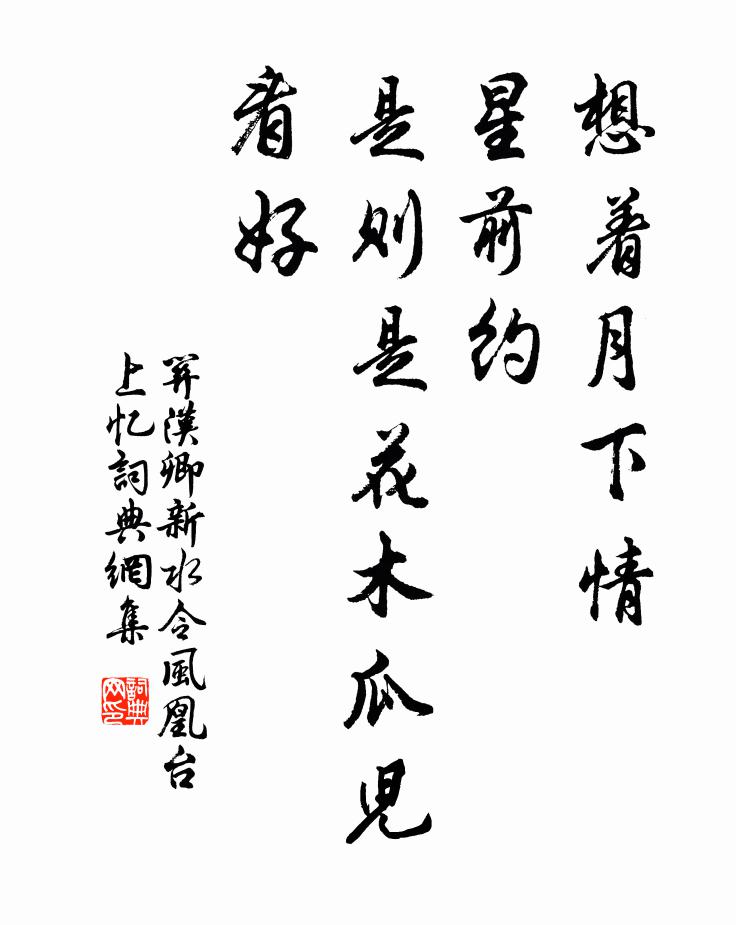 想着月下情
星前约
是则是花木瓜児
看好
関漢卿新水令風凰台
上忆詞典網集
詞典
网印